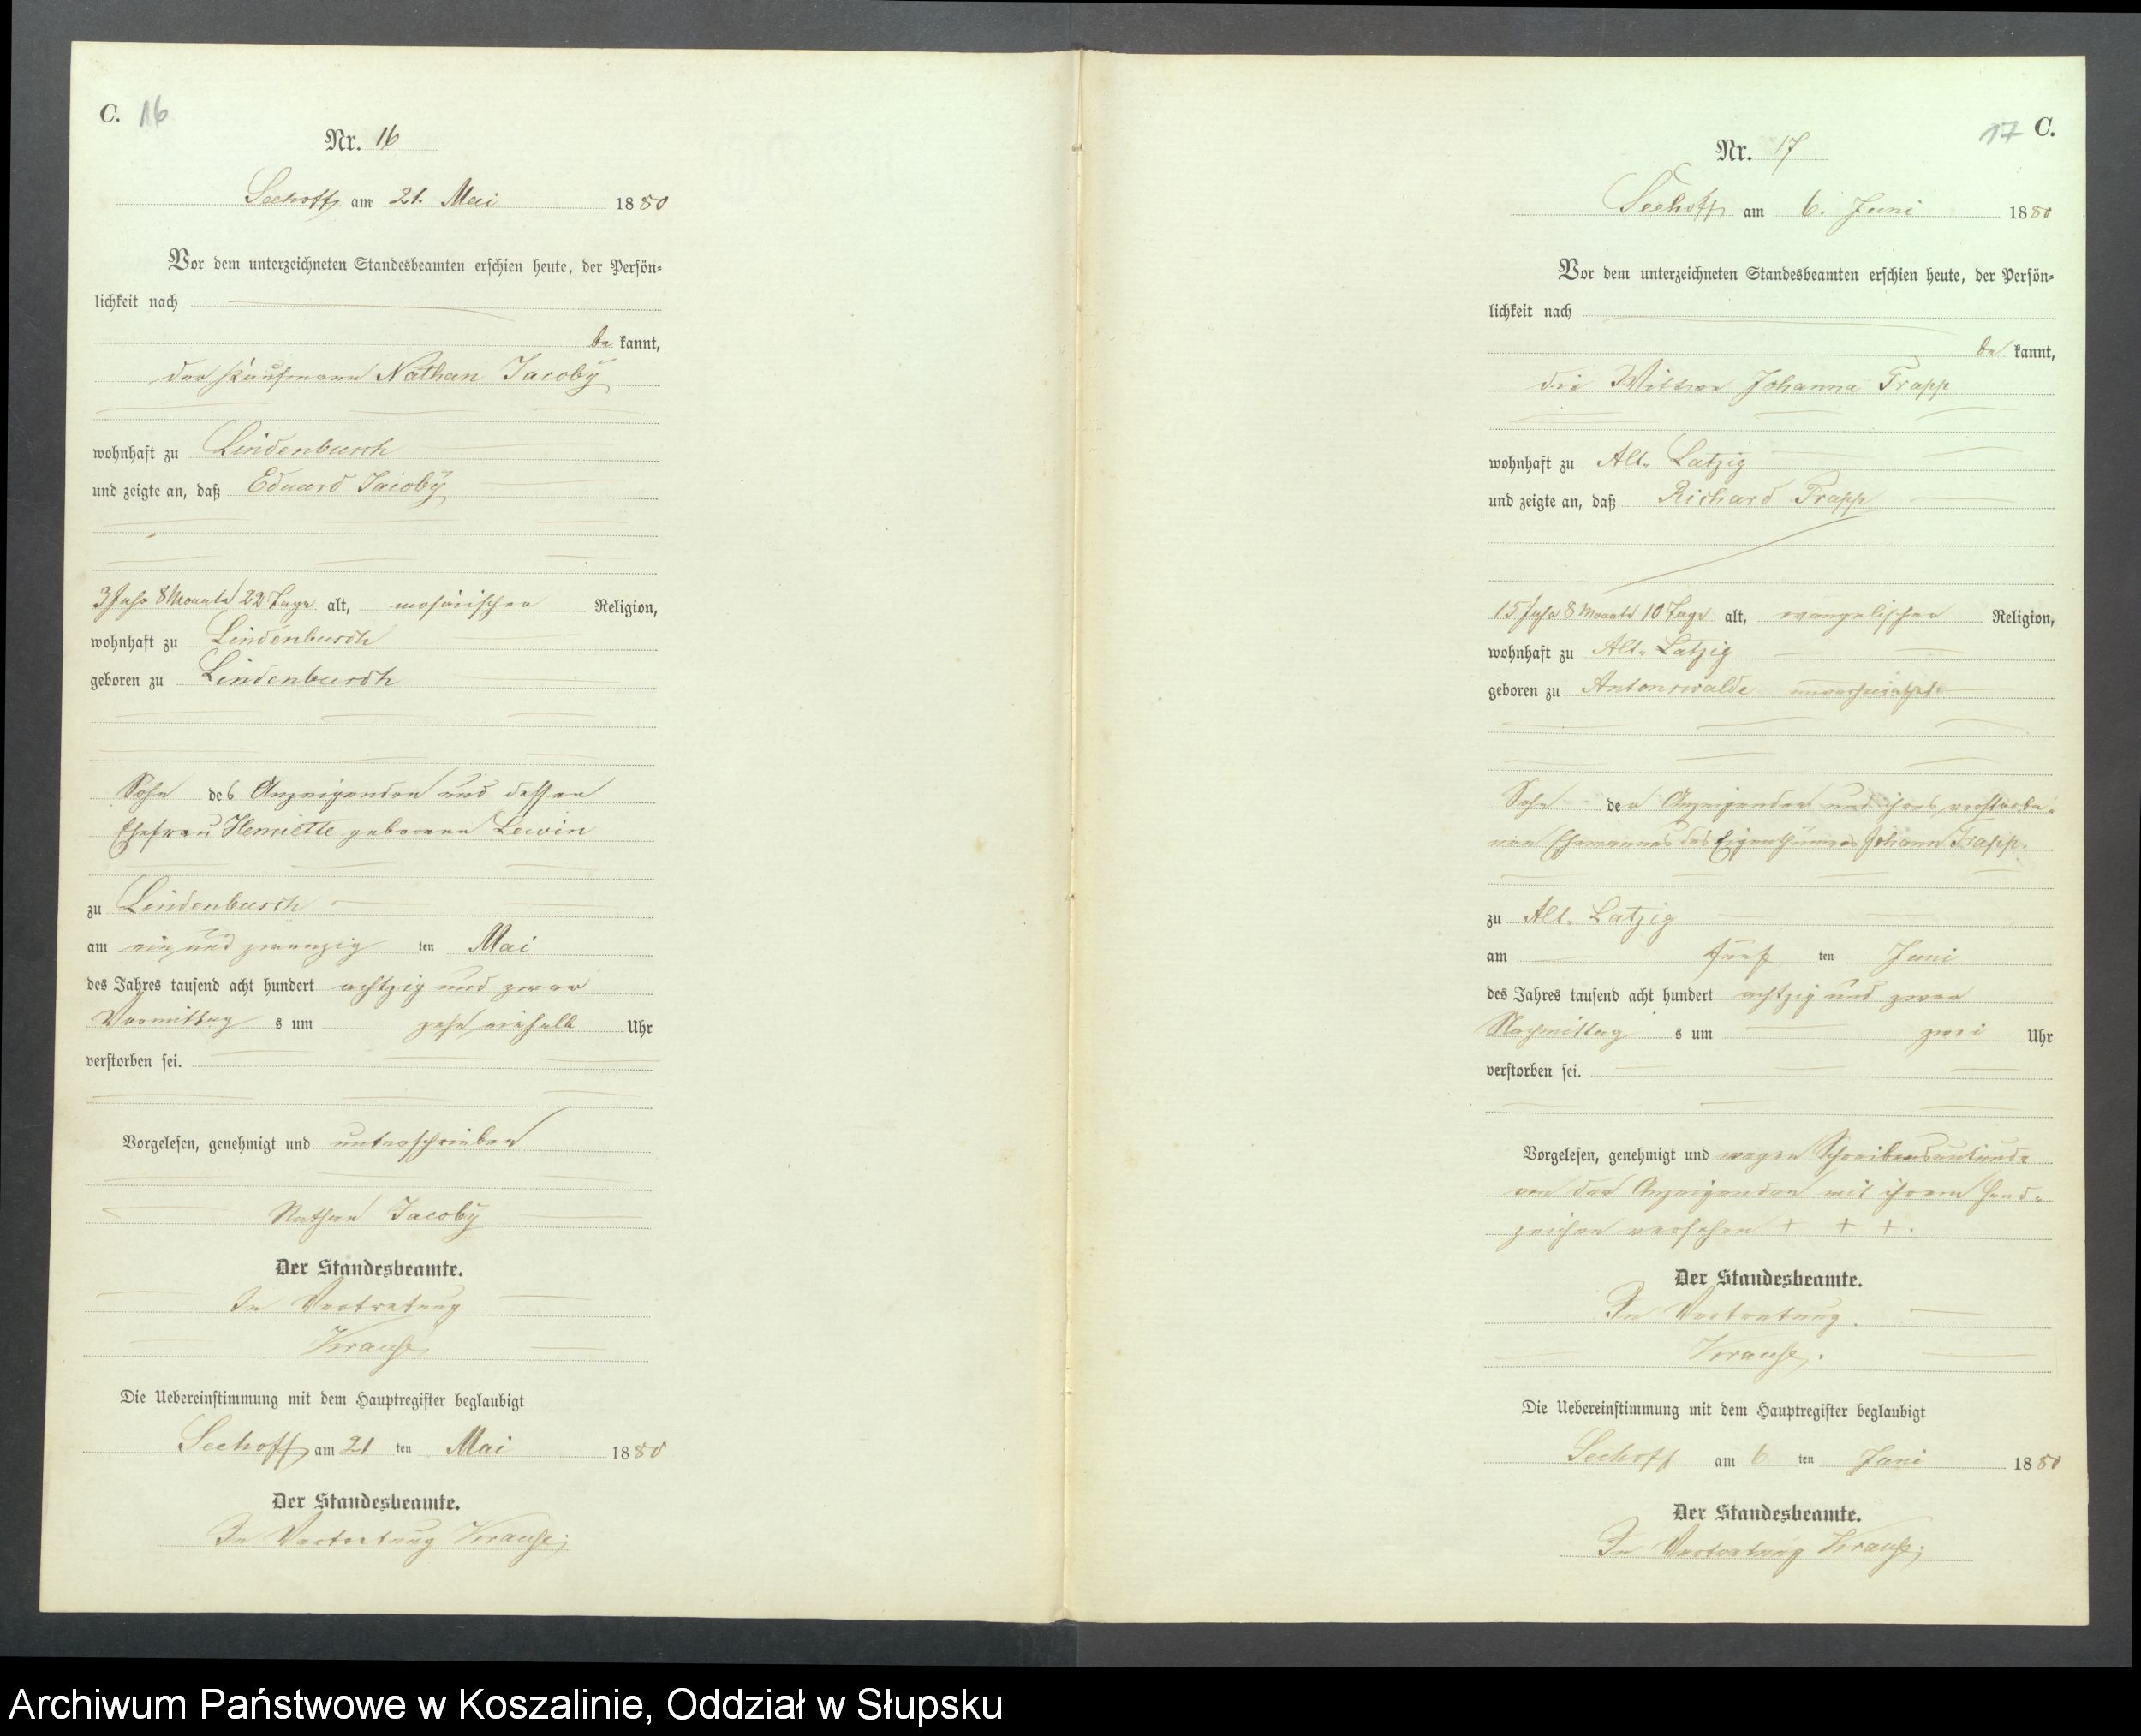 C. 16
Nr. 16
Seehoff am 21. Mai 1880
Vor dem unterzeichneten Standesbeamten erschien heute, der Persön-
lichkeit nach
be kannt,
der Kaufmann Nathan Jacoby
wohnhaft zu Lindenbusch
und zeigte an, daß Eduard Jacoby
3 Jahr 8 Monate 22 Tage alt, mosaischer Religion,
wohnhaft zu Lindenbusch
geboren zu Lindenbusch
Sohn des Anzeigenden und dessen
Ehefrau Henriette geborene Lewin
zu Lindenbusch
am ein und zwanzig ten Mai
des Jahres tausend acht hundert achtzig und zwar
Vormittag s um zehn einhalb Uhr
verstorben sei.
Vorgelesen, genehmigt und unterschrieben
Nathan Jacoby
Der Standesbeamte.
In Vertretung
Krause
Die Uebereinstimmung mit dem Hauptregister beglaubigt
Seehoff am 21 ten Mai 1880
Der Standesbeamte.
In Vertretung Krause;
17 C.
Nr. 17
Seehoff am 6. Juni 1880
Vor dem unterzeichneten Standesbeamten erschien heute, der Persön-
lichkeit nach
be kannt,
die Wittwe Johanna Trapp
wohnhaft zu Alt-Latzig
und zeigte an, daß Richard Trapp
15 Jahr 8 Monate 10 Tage alt, evangelischer Religion,
wohnhaft zu Alt-Latzig
geboren zu Antonswalde unverheirathet
Sohn der Anzeigenden und ihres verstorbe-
nen Ehemannes des Eigenthümers Johann Trapp.
zu Alt-Latzig
am fünf ten Juni
des Jahres tausend acht hundert achtzig und zwar
Nachmittag s um zwei Uhr
verstorben sei.
Vorgelesen, genehmigt und wegen Schreibensunkunde
von der Anzeigenden mit ihrem Hand-
zeichen versehen + + +.
Der Standesbeamte.
In Vertretung.
Krause.
Die Uebereinstimmung mit dem Hauptregister beglaubigt
Seehoff am 6 ten Juni 1880
Der Standesbeamte.
In Vertretung Krause;
Archiwum Państwowe w Koszalinie, Oddział w Słupsku